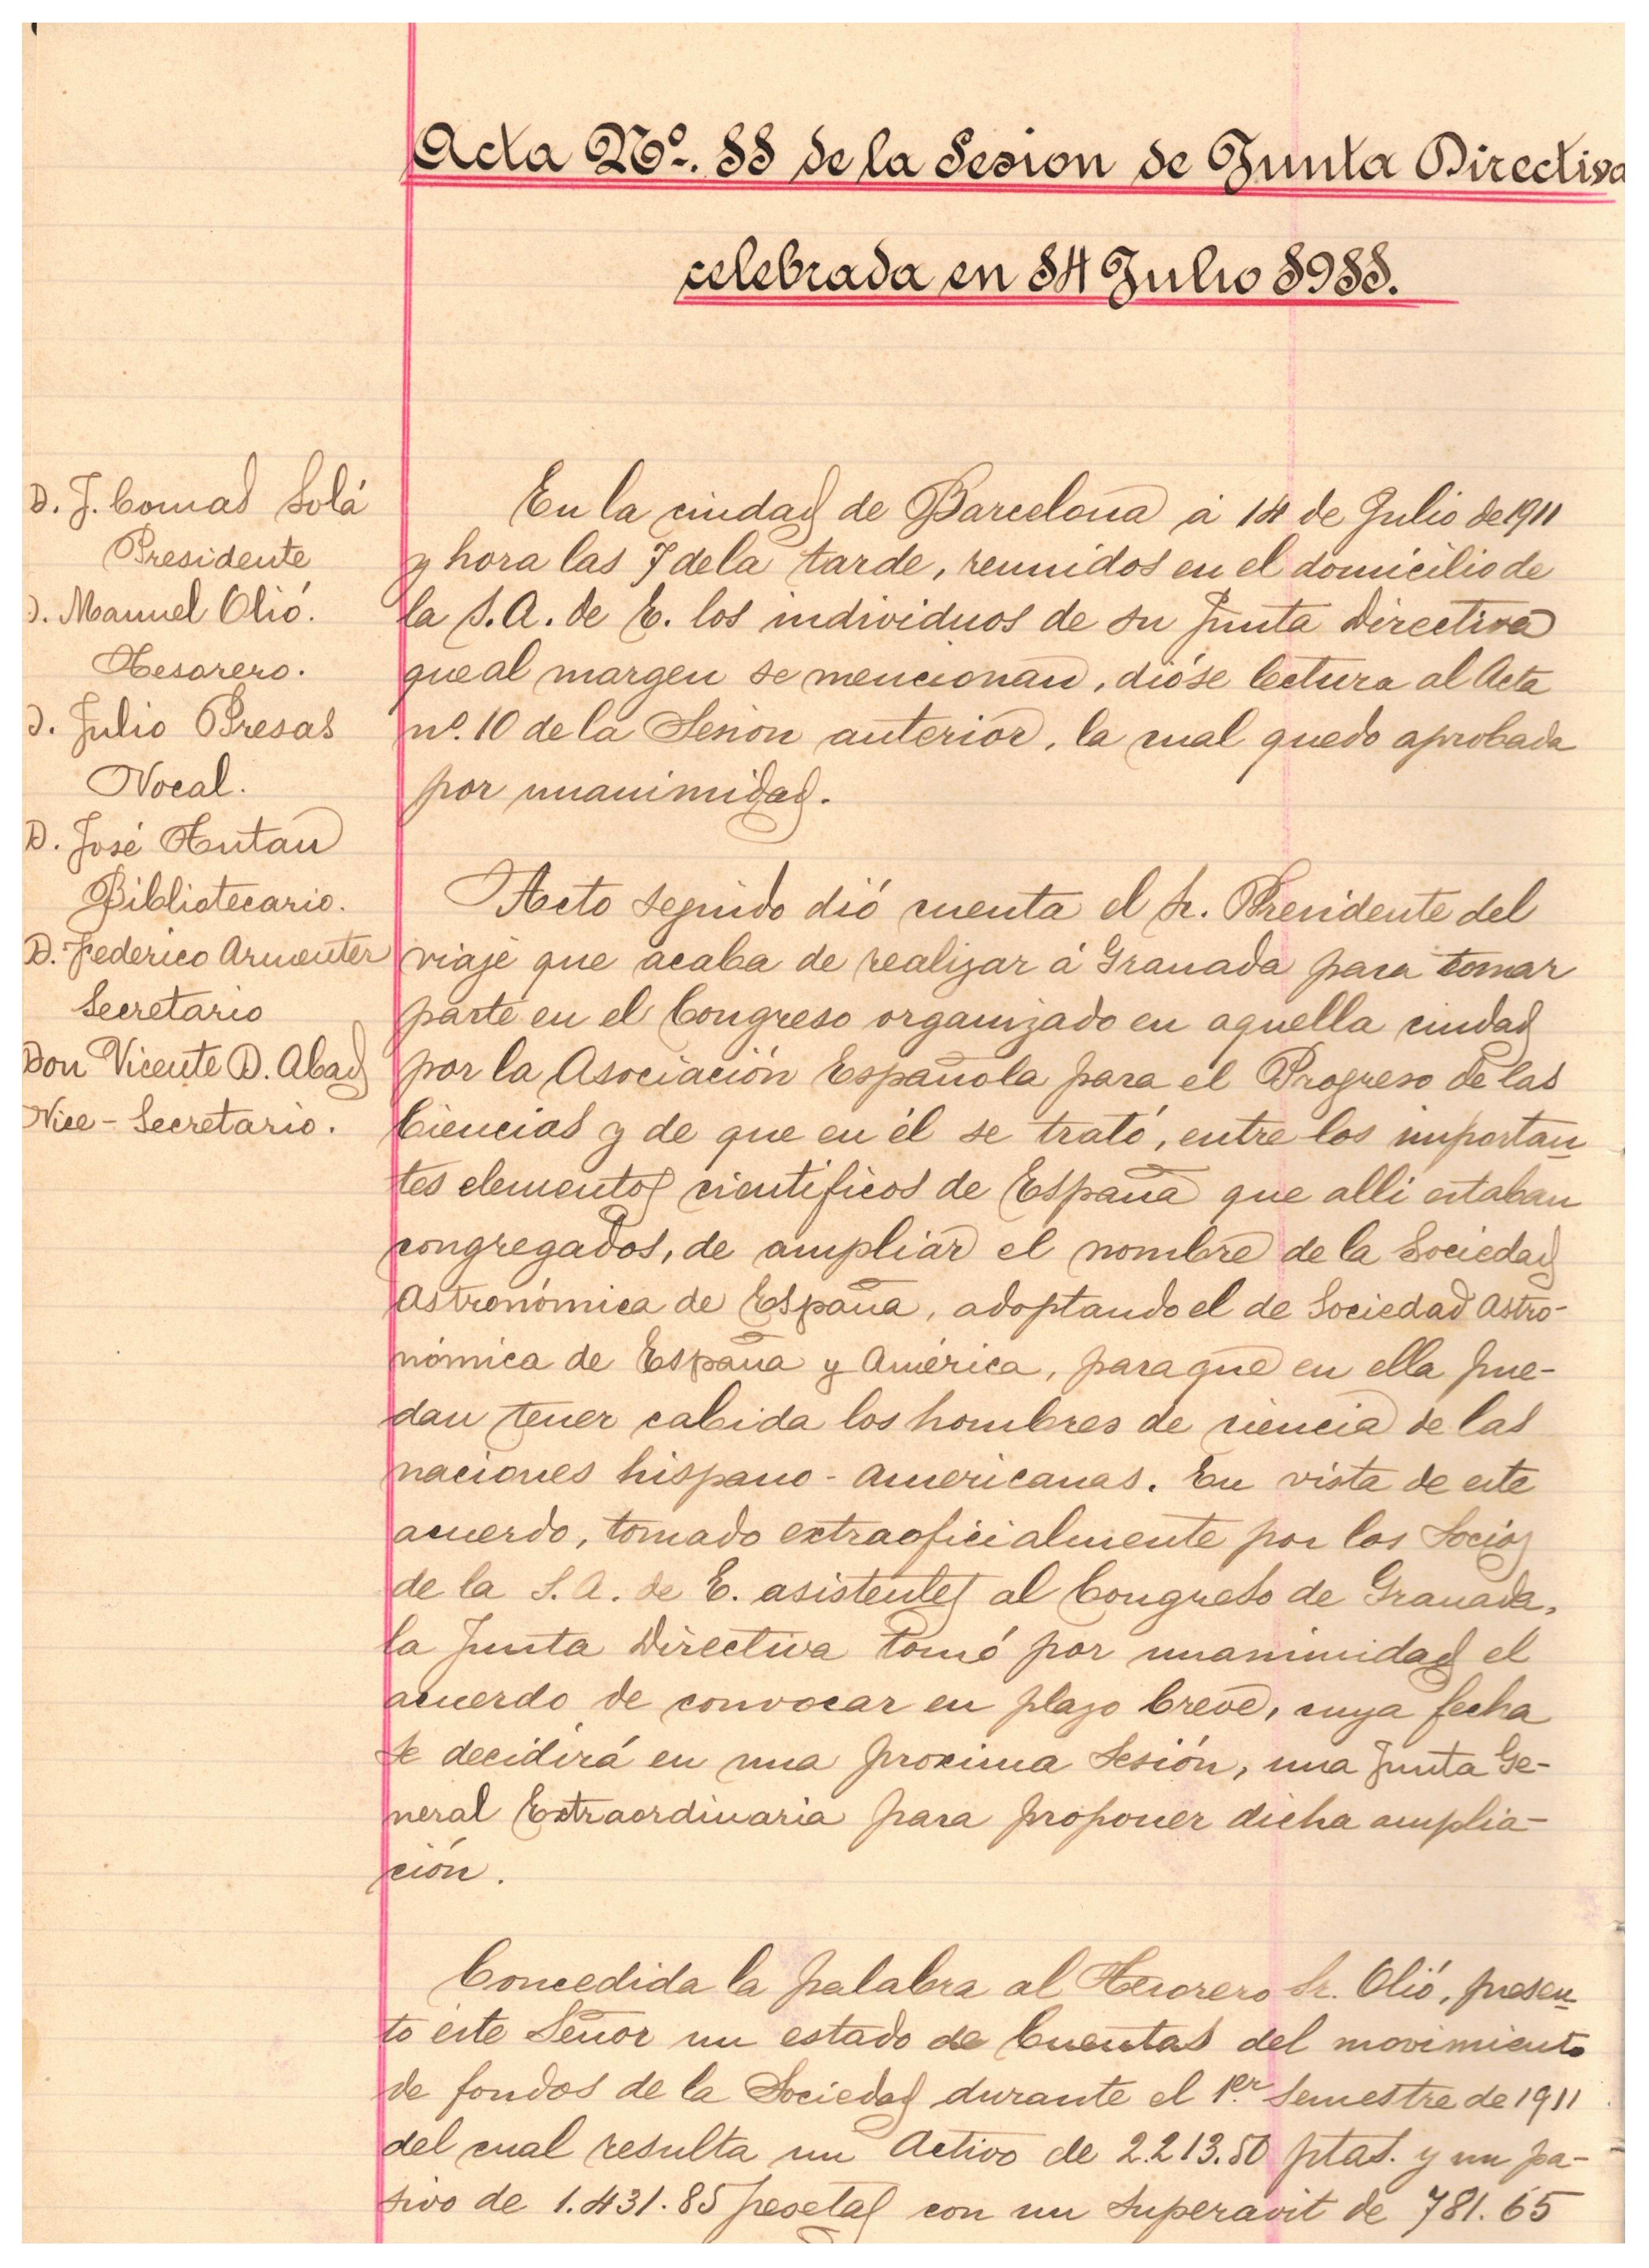 Acta Nº. 11 de la Sesion de Junta Directiva
celebrada en 14 Julio 1911.
D. J. Comas Solá
Presidente
D. Manuel Olió.
Tesorero.
D. Julio Presas
Vocal.
D. José Tutau
Bibliotecario.
D. Federico Armenter
Secretario
Don Vicente D. Abad
Vice-Secretario.
En la ciudad de Barcelona á 14 de Julio de 1911
y hora las 7 de la tarde, reunidos en el domicilio de
la S. A. de E. los individuos de su Junta Directiva
que al margen se mencionan, dióse lectura al Acta
nº. 10 de la Sesion anterior, la cual quedo aprobada
por unanimidad.
Acto seguido dió cuenta el Sr. Presidente del
viaje que acaba de realizar á Granada para tomar
parte en el Congreso organizado en aquella ciudad
por la Asociación Española para el Progreso de las
Ciencias y de que en él se trató, entre los importan-
tes elementos cientificos de España que alli estaban
congregados, de ampliar el nombre de la Sociedad
Astronómica de España, adoptando el de Sociedad Astro-
nómica de España y América, para que en ella pue-
dan tener cabida los hombres de ciencia de las
naciones hispano-americanas. En vista de este
acuerdo, tomado extraoficialmente por los Socios
de la S. A. de E. asistentes al Congreso de Granada,
la Junta Directiva tomó por unanimidad el
acuerdo de convocar en plazo breve, cuya fecha
se decidirá en una proxima Sesión, una Junta Ge-
neral Extraordinaria para proponer dicha amplia-
ción.
Concedida la palabra al Tesorero Sr. Olió, presen-
tó este Señor un estado de Cuentas del movimiento
de fondos de la Sociedad durante el 1er. Semestre de 1911
del cual resulta un Activo de 2.213.50 ptas. y un pa-
sivo de 1.431.85 pesetas con un Superavit de 781.65